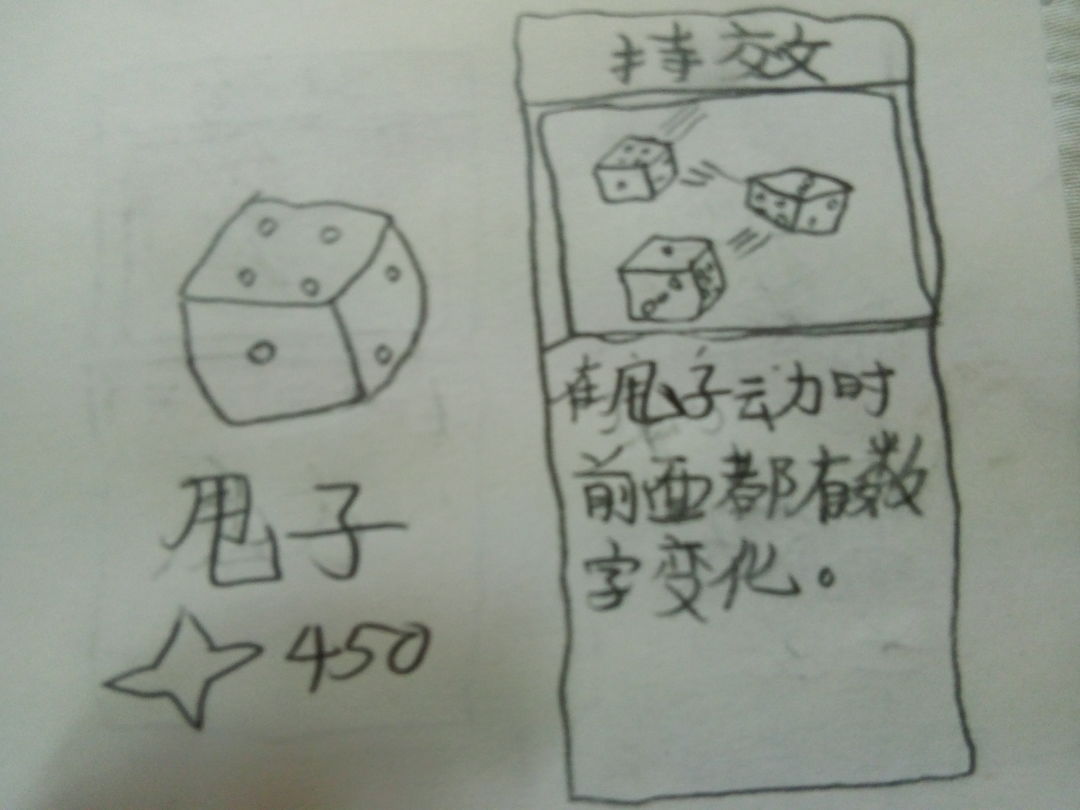 特效
在甩子云力时
前面都有数
字变化。
甩子
450